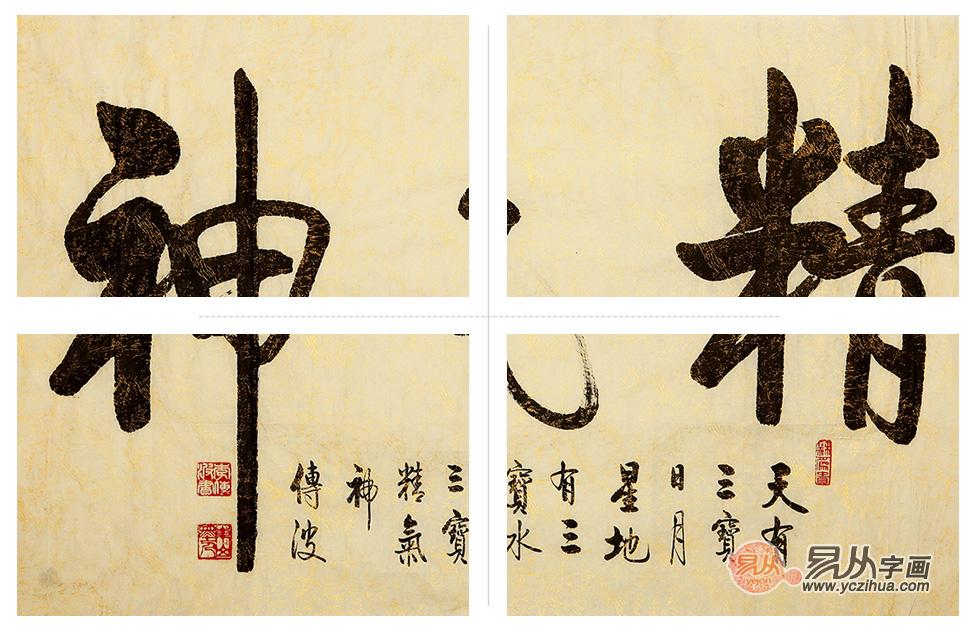 精
神
天有
三寶
日月
星地
有三
寶水
三寶
精氣
神
傳波
易从
yejon
易从字画
www.yczihua.com